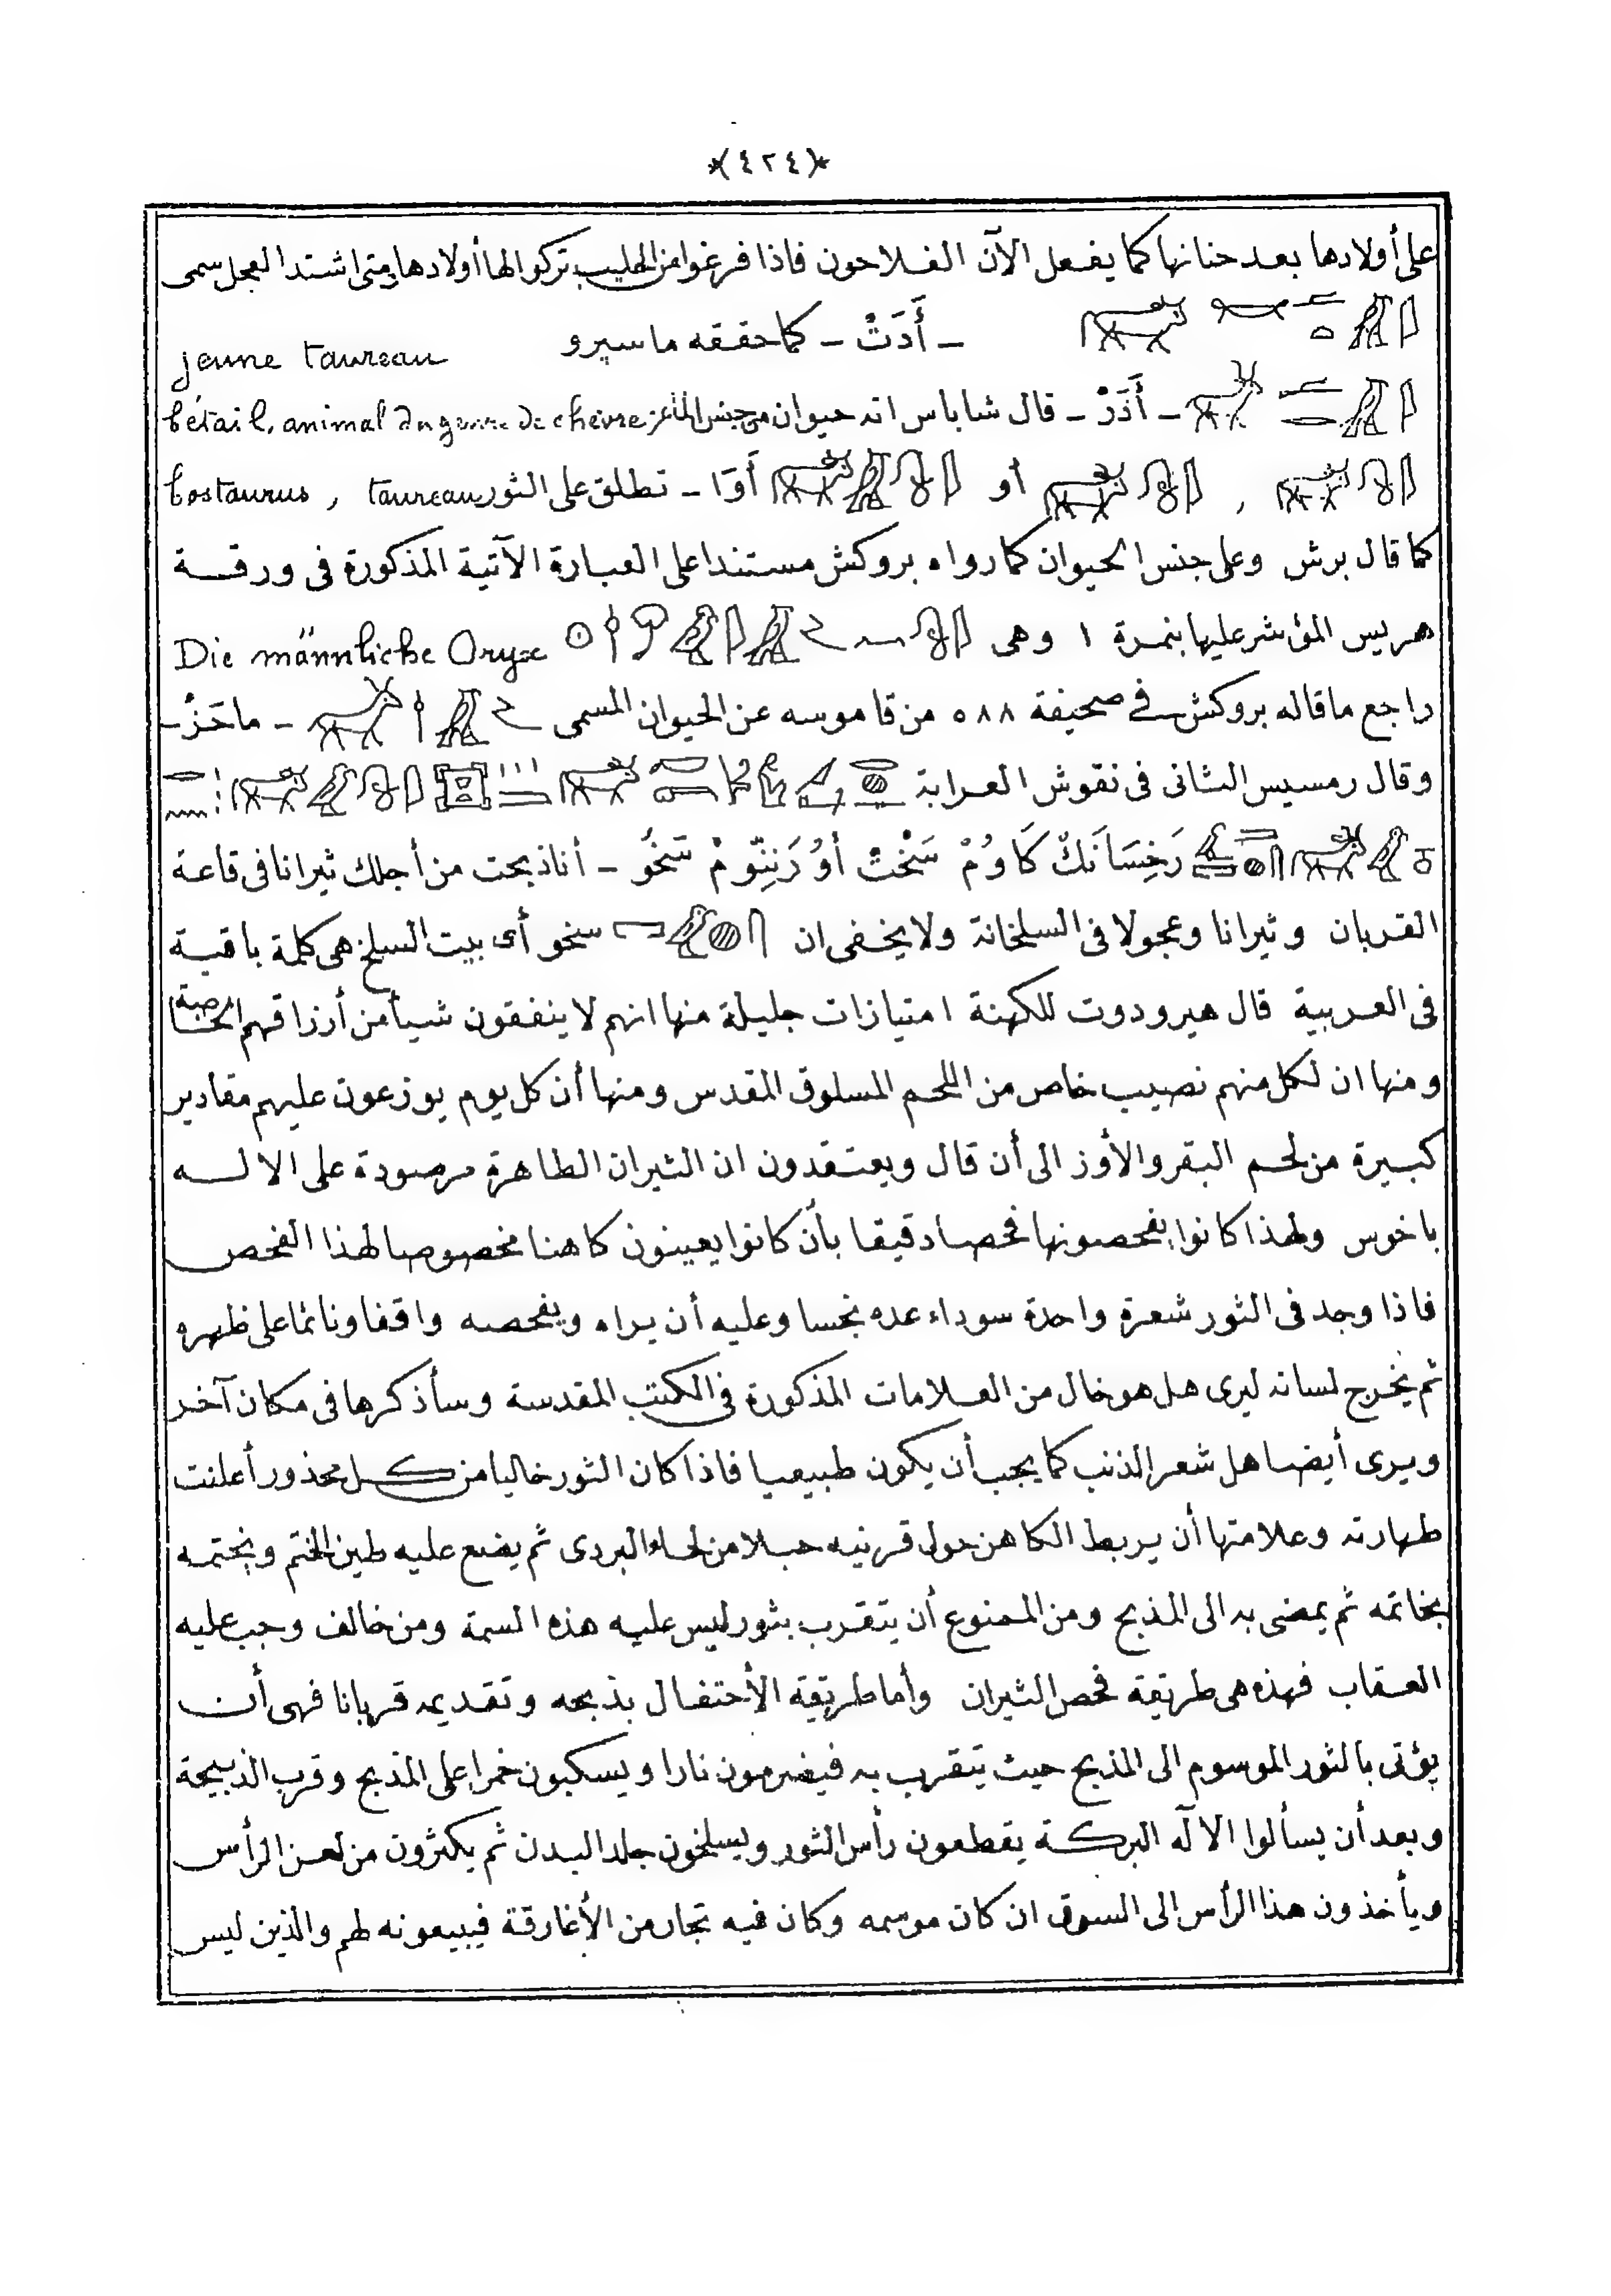 *(٤٢٤)*
على أولادها بعد حنانها كما يفعل الآن الفلاحون فاذا فرغوا من الحليب تركوا لها أولادها ومتى اشتد العجل سمى
– أَدَتْ – كما حققه ماسپرو jeune taureau
– أَدَرْ – قال شاباس انه حيوان من جنس الماعز bétail, animal du genre de chèvre
, أو أَوَا – تطلق على الثور bostaurus, taureau
كما قال برش وعلى جنس الحيوان كما رواه بروكش مستندا على العبارة الآتية المذكورة فى ورقة
هريس المؤشر عليها بنمرة ١ وهى Die männliche Oryx
راجع ما قاله بروكش فى صحيفة ٥٨٨ من قاموسه عن الحيوان المسمى – ماحَزْ –
وقال رمسيس الثانى فى نقوش العرابة
رَخِسَا نَكْ كَاوُمْ سَخْتْ أوُ رَنِتّومْ سَخُو – أنا ذبحت من أجلك ثيرانا فى قاعة
القربان وثيرانا وعجولا فى السلخانة ولا يخفى ان سخو أى بيت السلخ هى كلمة باقية
فى العربية قال هيرودوت للكهنة امتيازات جليلة منها انهم لا ينفقون شيأ من أرزاقهم الخاصة
ومنها ان لكل منهم نصيب خاص من اللحم المسلوق المقدس ومنها أن كل يوم يوزعون عليهم مقادير
كبيرة من لحم البقر والأوز الى أن قال ويعتقدون ان الثيران الطاهرة مرصودة على الاله
باخوس ولهذا كانوا يفحصونها فحصا دقيقا بأن كانوا يعينون كاهنا مخصوصا لهذا الفحص
فاذا وجد فى الثور شعرة واحدة سوداء عده نجسا وعليه أن يراه ويفحصه واقفا ونائما على ظهره
ثم يخرج لسانه ليرى هل هو خال من العلامات المذكورة فى الكتب المقدسة وسأذكرها فى مكان آخر
ويرى أيضا هل شعر الذنب كما يجب أن يكون طبيعيا فاذا كان الثور خاليا من كل محذور أعلنت
طهارته وعلامتها أن يربط الكاهن حول قرنيه حبلا من لحاء البردى ثم يضع عليه طين الختم ويختمه
بخاتمه ثم يمضى به الى المذبح ومن الممنوع أن يتقرب بثور ليس عليه هذه السمة ومن خالف وجب عليه
العقاب فهذه هى طريقة فحص الثيران وأما طريقة الأحتفال بذبحه وتقديمه قربانا فهى أن
يؤتى بالثور الموسوم الى المذبح حيث يتقرب به فيضرمون نارا ويسكبون خمرا على المذبح وقرب الذبيحة
وبعد أن يسألوا الاله البركة يقطعون رأس الثور ويسلخون جلد البدن ثم يكثرون من لعن الرأس
ويأخذون هذا الرأس الى السوق ان كان موسمه وكان فيه تجار من الأغارقة فيبيعونه لهم والذين ليس